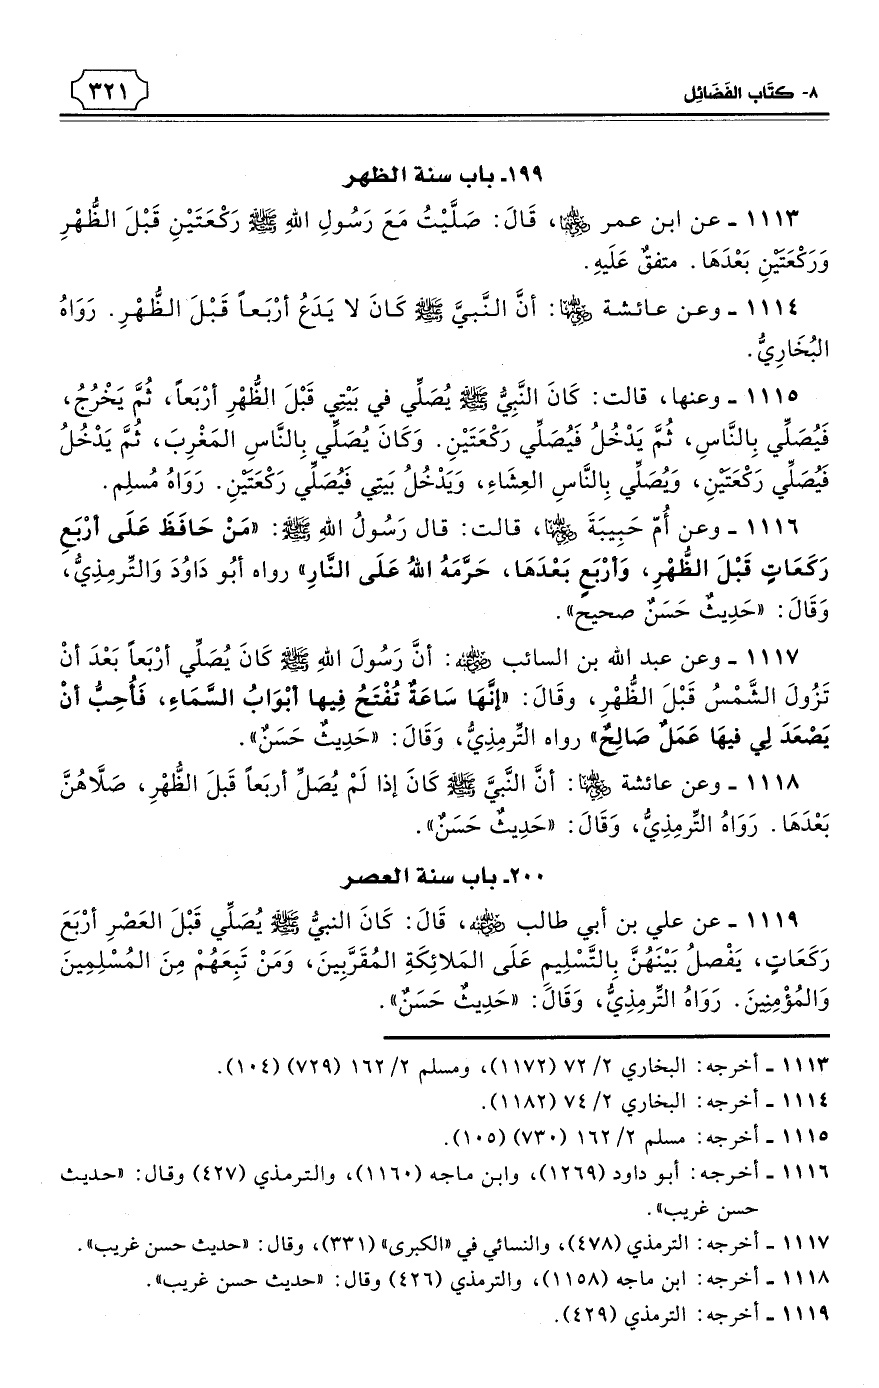 ٨- كتَاب الفَضَائِل
٣٢١
١٩٩ـ باب سنة الظهر
١١١٣ ـ عن ابن عمر ﵄، قَالَ: صَلَّيْتُ مَعَ رَسُولِ اللهِ ﷺ رَكْعَتَيْنِ قَبْلَ الظُّهْرِ
وَرَكْعَتَيْنِ بَعْدَهَا. متفقٌ عَلَيهِ.
١١١٤ ـ وعن عائشة ﵂: أنَّ النَّبيَّ ﷺ كَانَ لا يَدَعُ أرْبَعاً قَبْلَ الظُّهْرِ. رَوَاهُ
البُخَارِيُّ.
١١١٥ ـ وعنها، قالت: كَانَ النَّبِيُّ ﷺ يُصَلِّي في بَيْتِي قَبْلَ الظُّهْرِ أرْبَعاً، ثُمَّ يَخْرُجُ،
فَيُصَلِّي بِالنَّاسِ، ثُمَّ يَدْخُلُ فَيُصَلِّي رَكْعَتَيْنِ. وَكَانَ يُصَلِّي بِالنَّاسِ المَغْرِبَ، ثُمَّ يَدْخُلُ
فَيُصَلِّي رَكْعَتَيْنِ، وَيُصَلِّي بِالنَّاسِ العِشَاءِ، وَيَدْخُلُ بَيتِي فَيُصَلِّي رَكْعَتَيْنِ. رَوَاهُ مُسلِم.
١١١٦ ـ وعن أُمّ حَبِيبَةَ ﵂، قالت: قال رَسُولُ اللهِ ﷺ: «مَنْ حَافَظَ عَلَى أرْبَعِ
رَكَعَاتٍ قَبْلَ الظُّهْرِ، وَأرْبَعٍ بَعْدَهَا، حَرَّمَهُ اللهُ عَلَى النَّارِ» رواه أبُو دَاوُدَ وَالتِّرمِذِيُّ،
وَقَالَ: «حَدِيثٌ حَسَنٌ صحيح».
١١١٧ ـ وعن عبد الله بن السائب ﵁: أنَّ رَسُولَ اللهِ ﷺ كَانَ يُصَلِّي أرْبَعاً بَعْدَ أنْ
تَزُولَ الشَّمْسُ قَبْلَ الظُّهْرِ، وقَالَ: «إنَّهَا سَاعَةٌ تُفْتَحُ فِيها أبْوَابُ السَّمَاءِ، فَأُحِبُّ أنْ
يَصْعَدَ لِي فيهَا عَمَلٌ صَالِحٌ» رواه التِّرمِذِيُّ، وَقَالَ: «حَدِيثٌ حَسَنٌ».
١١١٨ ـ وعن عائشة ﵂: أنَّ النَّبيَّ ﷺ كَانَ إذا لَمْ يُصَلِّ أربَعاً قَبلَ الظُّهْرِ، صَلَّاهُنَّ
بَعْدَهَا. رَوَاهُ التِّرمِذِيُّ، وَقَالَ: «حَدِيثٌ حَسَنٌ».
٢٠٠ـ باب سنة العصر
١١١٩ ـ عن علي بن أبي طالب ﵁، قَالَ: كَانَ النبيُّ ﷺ يُصَلِّي قَبْلَ العَصْرِ أرْبَعَ
رَكَعَاتٍ، يَفْصلُ بَيْنَهُنَّ بِالتَّسْلِيمِ عَلَى المَلائِكَةِ المُقَرَّبِينَ، وَمَنْ تَبِعَهُمْ مِنَ المُسْلِمِينَ
وَالمُؤْمِنِينَ. رَوَاهُ التِّرمِذِيُّ، وَقَالَ: «حَدِيثٌ حَسَنٌ».
١١١٣ ـ أخرجه: البخاري ٢/ ٧٢ (١١٧٢)، ومسلم ٢/ ١٦٢ (٧٢٩) (١٠٤).
١١١٤ ـ أخرجه: البخاري ٢/ ٧٤ (١١٨٢).
١١١٥ ـ أخرجه: مسلم ٢/ ١٦٢ (٧٣٠) (١٠٥).
١١١٦ ـ أخرجه: أبو داود (١٢٦٩)، وابن ماجه (١١٦٠)، والترمذي (٤٢٧) وقال: «حديث
حسن غريب».
١١١٧ ـ أخرجه: الترمذي (٤٧٨)، والنسائي في «الكبرى» (٣٣١)، وقال: «حديث حسن غريب».
١١١٨ ـ أخرجه: ابن ماجه (١١٥٨)، والترمذي (٤٢٦) وقال: «حديث حسن غريب».
١١١٩ ـ أخرجه: الترمذي (٤٢٩).